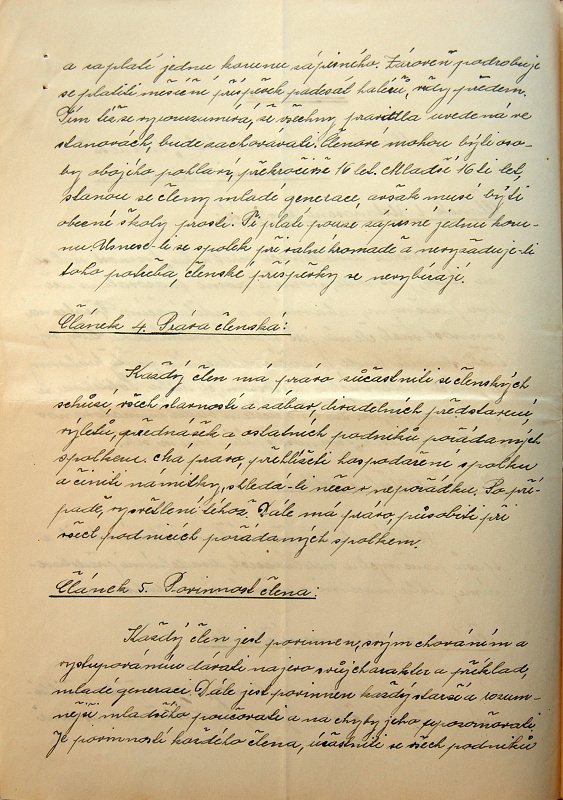 a zaplatí jednu korunu zápisného. Zároveň podrobuje
se platiti měsíční příspěvek padesát haléřů, vždy předem.
Tím též se vyrozumívá, že všechny pravidla uvedená ve
stanovách, bude zachovávati. Členové mohou býti oso-
by obojího pohlaví, překročivše 16 let. Mladší 16ti let,
stanou se členy mladé generace, avšak musí býti
obecné školy prosti. Ti platí pouze zápisné jednu koru-
nu. Usnese-li se spolek při valné hromadě a nevyžaduje-li
toho potřeba, členské příspěvky se nevybírají.
Článek 4. Práva členská:
Každý člen má právo súčastniti se členských
schůzí, všech slavností a zábav, divadelních představení,
výletů, přednášek a ostatních podniků pořádaných
spolkem. Má právo, přehlížeti hospodaření spolku
a činiti namítky, shledá-li něco v nepořádku. Po pří-
padě, vysvětlení téhož. Dále má právo, působiti při
všech podnicích pořádaných spolkem.
Článek 5. Povinnost člena:
Každý člen jest povinnen, svým chováním a
vystupováním dávati na jevo svůj charakter a příklad,
mladé generaci. Dále jest povinnen každý starší a rozum-
nější mladšího poučovati a na chyby jeho upozorňovati.
Je povinností každého člena, účastniti se všech podniků